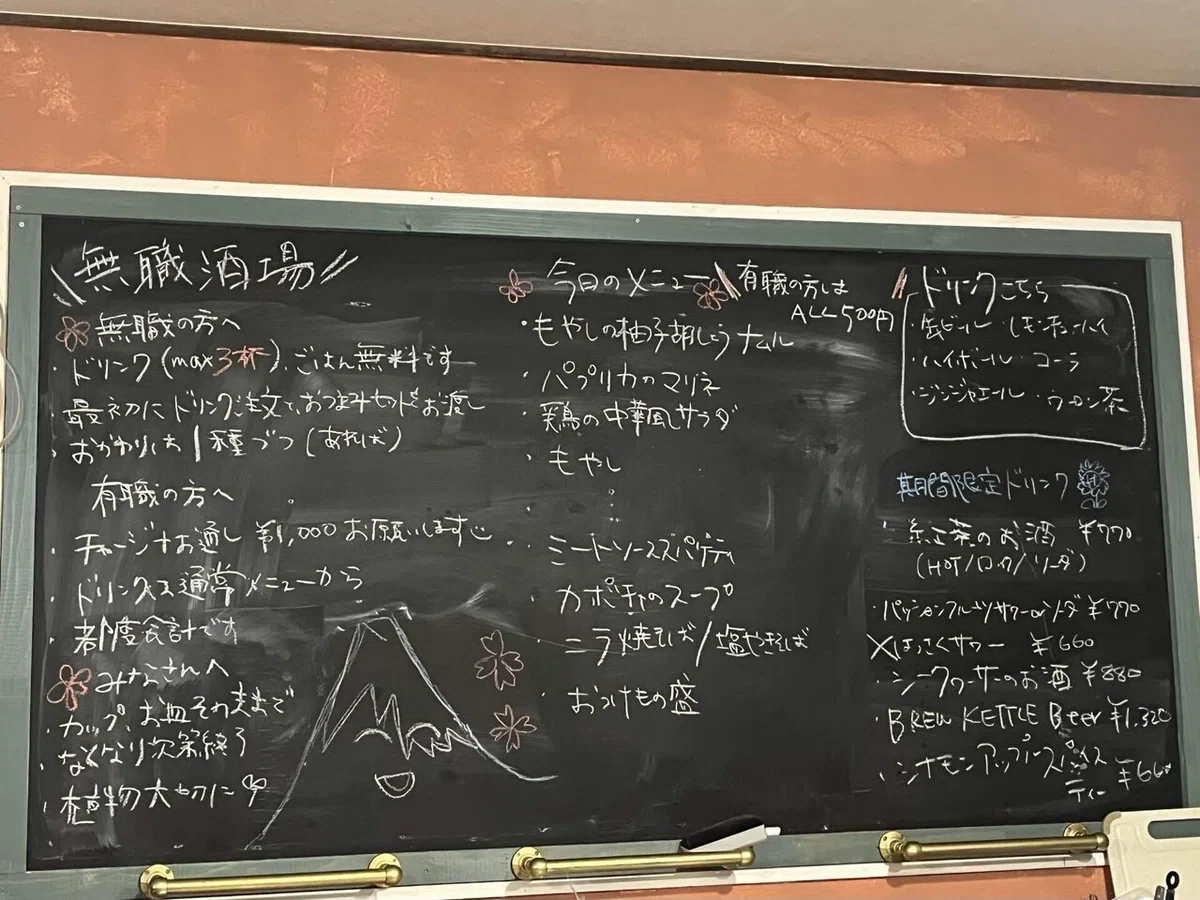 無職酒場
無職の方へ
・ドリンク(max3杯)、ごはん無料です
・最初にドリンク注文で、おつまみセットをお渡し
・おかわりは1種づつ(あれば)
有職の方へ
・チャージ+お通し ¥1,000お願いします
・ドリンクは通常メニューから
・都度会計です
みなさんへ
・カップ、お皿そのままで
・なくなり次第終了
・植物大切に
今日のメニュー
有職の方は
ALL 500円
・もやしの柚子胡しょうナムル
・パプリカのマリネ
・鶏の中華風サラダ
・もやし
・ミートソーススパゲティ
・カボチャのスープ
・ニラ焼そば/塩やきそば
・おつけもの盛
ドリンクこちら
・缶ビール ・レモンチューハイ
・ハイボール ・コーラ
・ジンジャエール ・ウーロン茶
期間限定ドリンク
・紅茶のお酒 ¥770
(HOT/ロック/ソーダ)
・パッションフルーツサワーorソーダ ¥770
×はっさくサワー ¥660
・シークヮーサーのお酒 ¥880
・BREW KETTLE Beer ¥1,320
・シナモンアップルスパイス
ティー ¥660